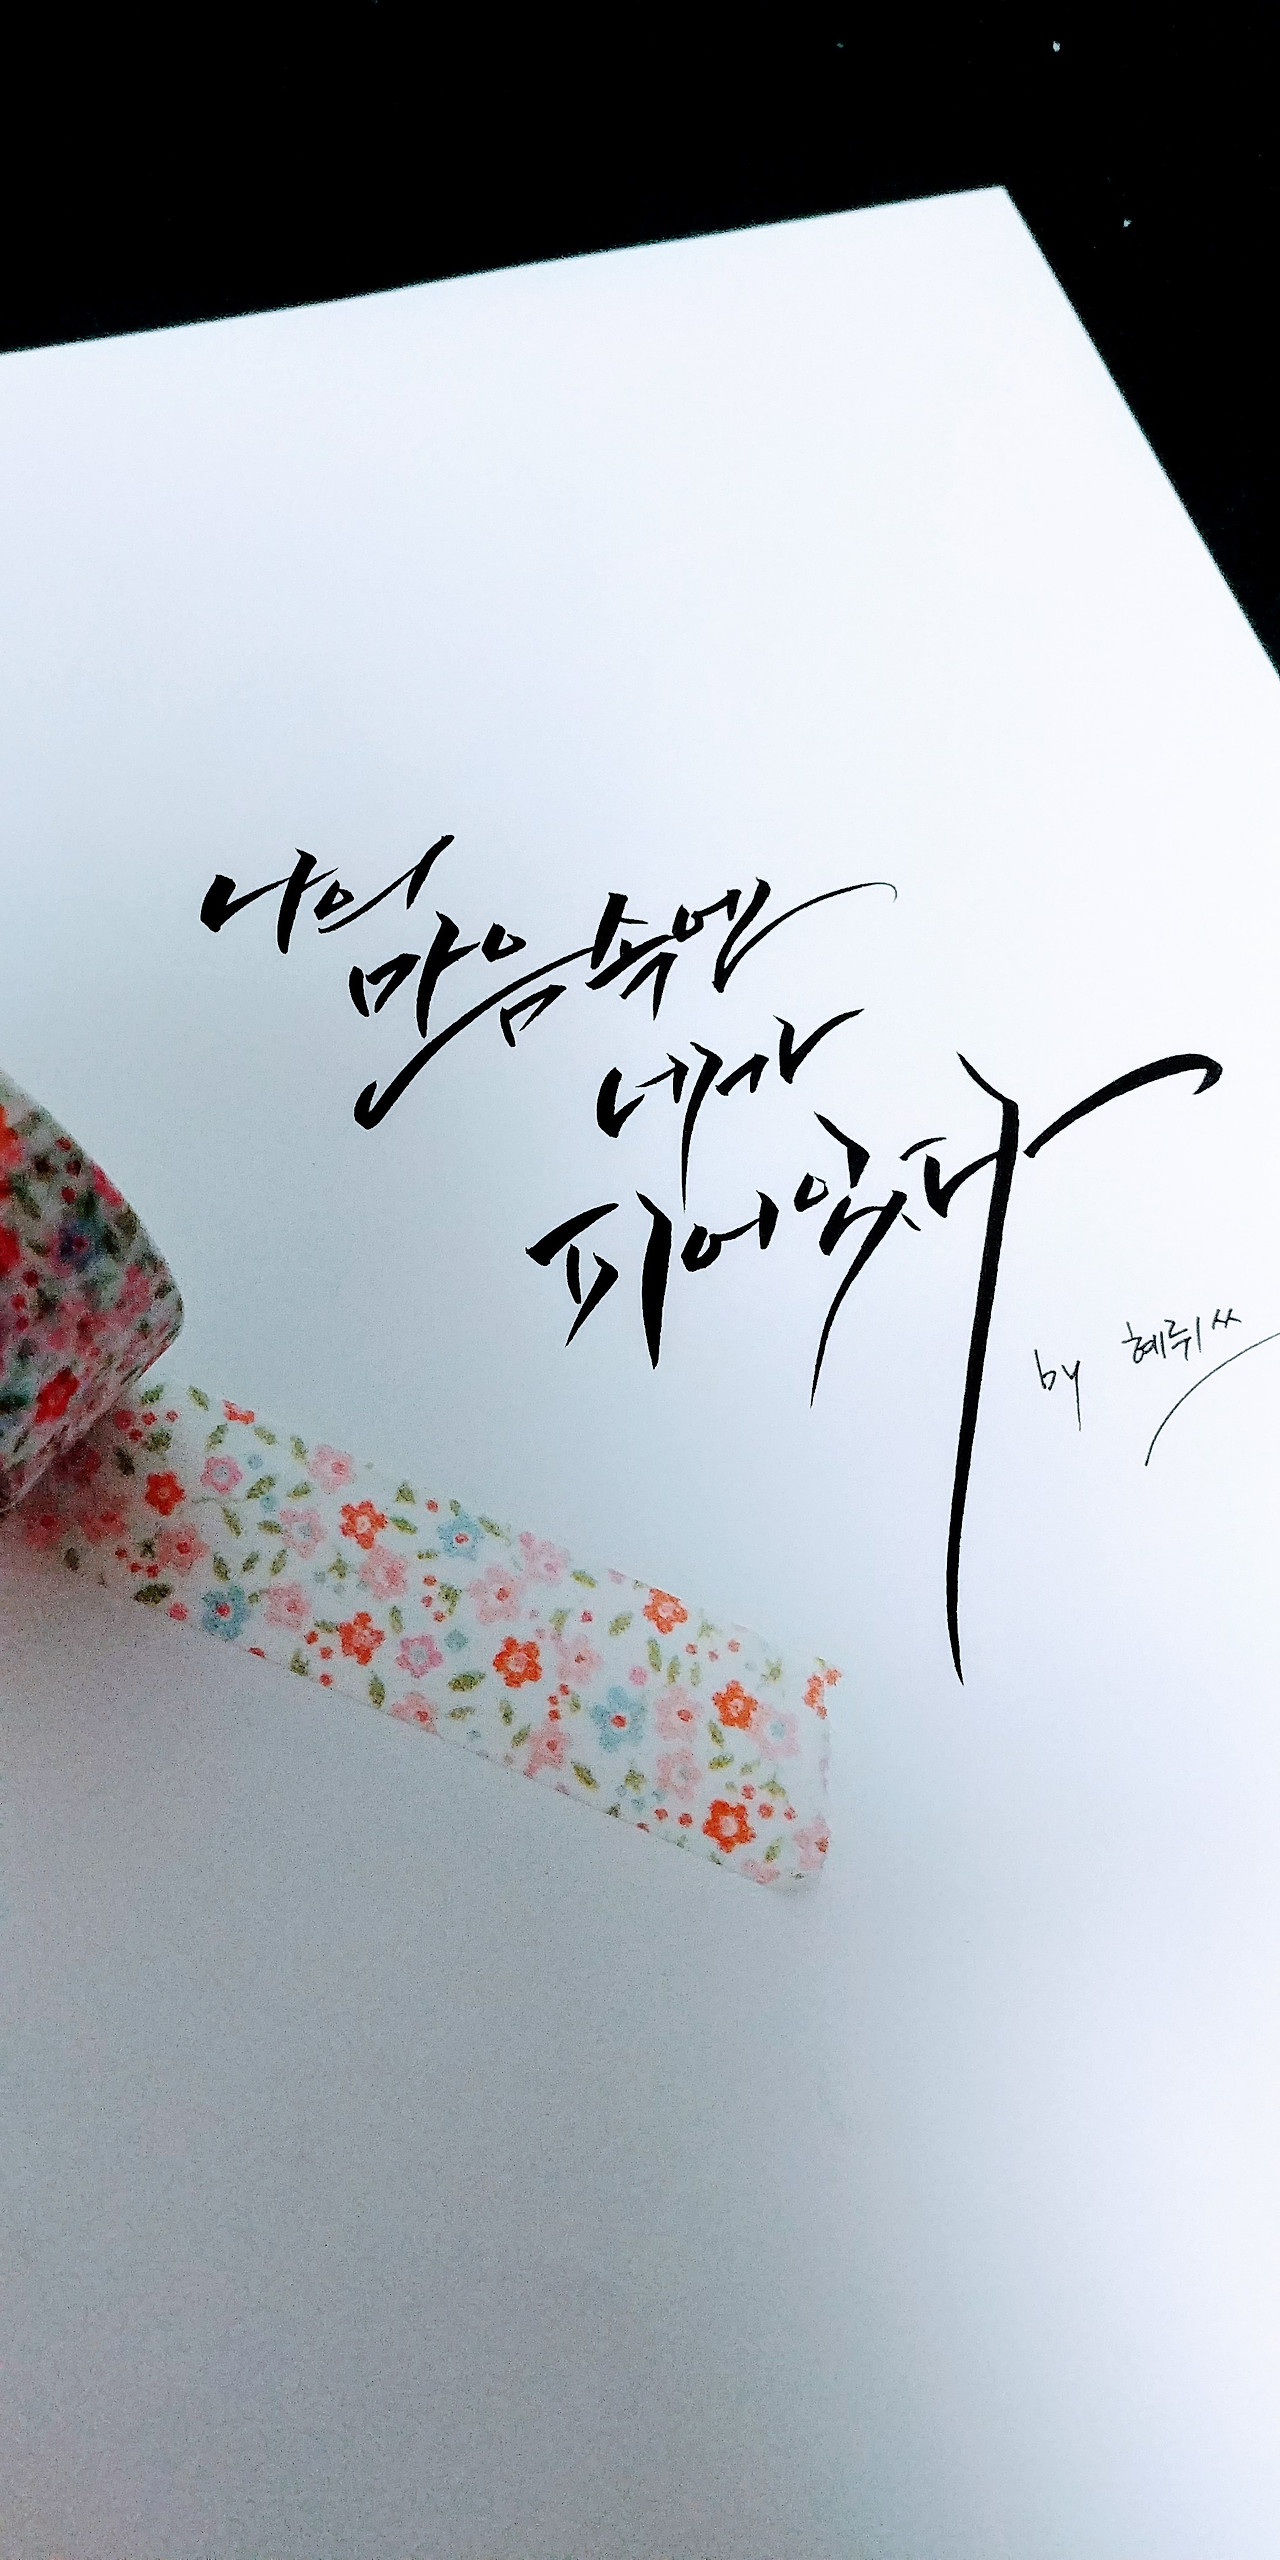 나의
마음속엔
네가
피어있다
by 혜쥐ㅆ